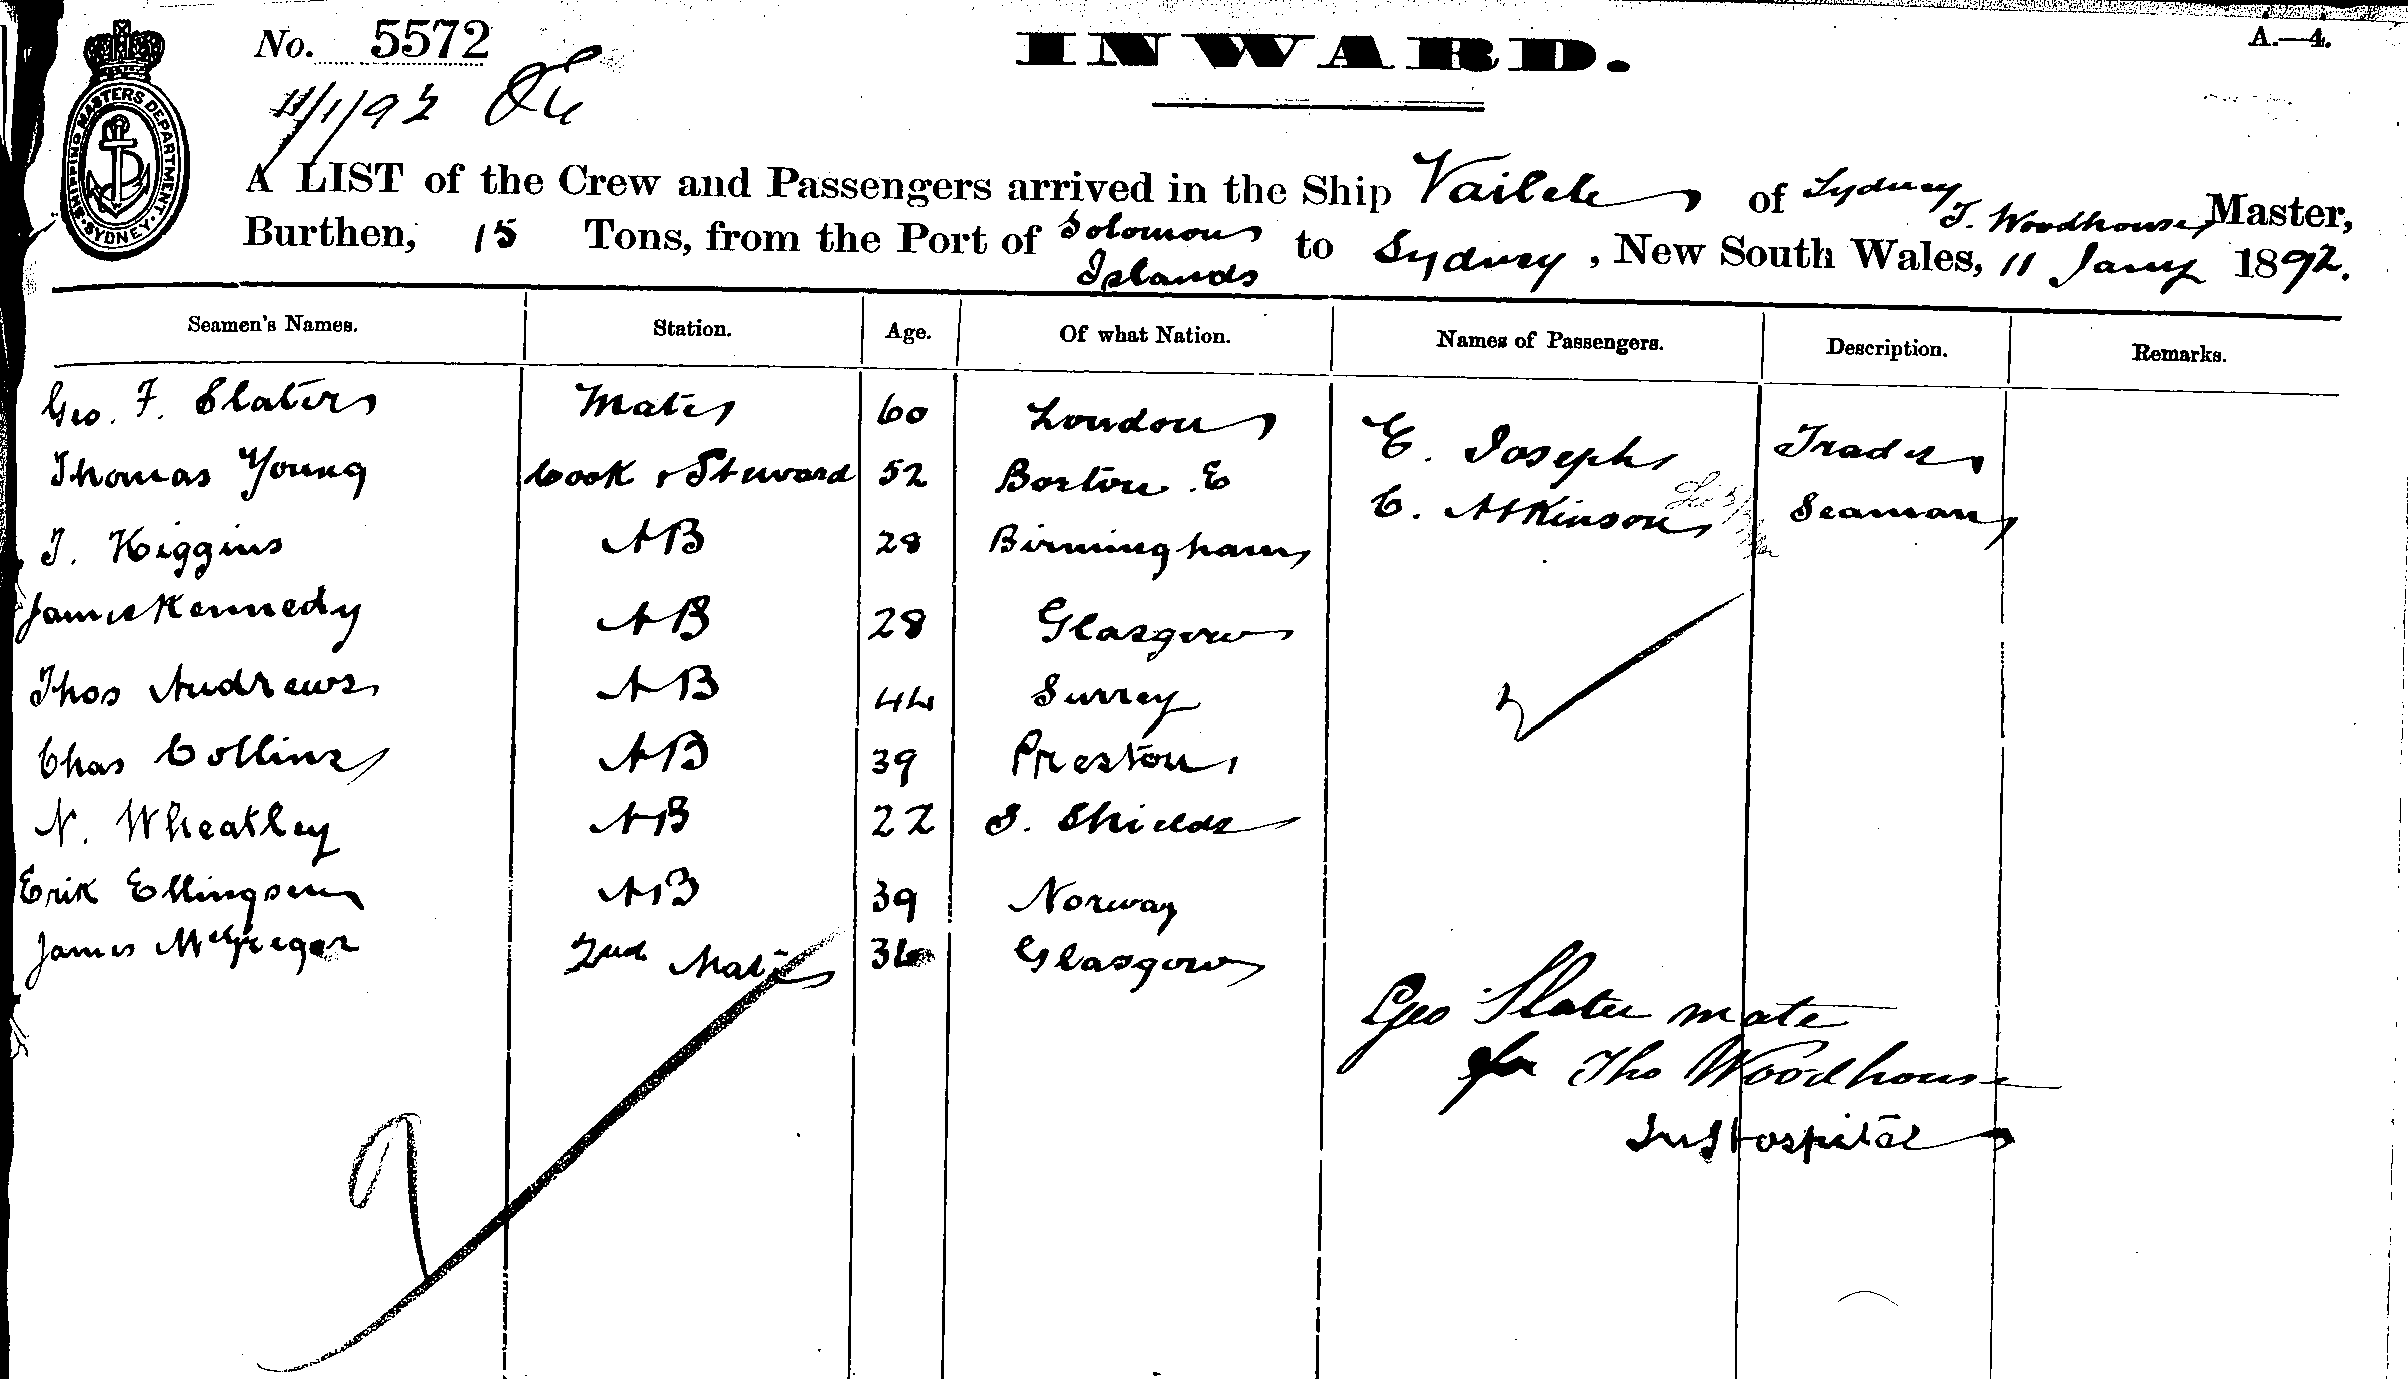 No. 5572
INWARD.
A.—4.
11/1/92
SHIPPING MASTERS DEPARTMENT. SYDNEY.
A LIST of the Crew and Passengers arrived in the Ship Vailele of Sydney T. Woodhouse, Master,
Burthen, 15 Tons, from the Port of Solomon Islands to Sydney, New South Wales, 11 Jany 1892.
Seamen's Names. Station. Age. Of what Nation. Names of Passengers. Description. Remarks.
Geo. F. Slater Mate 60 London E. Joseph Trader
Thomas Young Cook & Steward 52 Boston E C. Atkinson Seaman
J. Higgins AB 28 Birmingham
James Kennedy AB 28 Glasgow
Thos Andrews AB 44 Surrey
Chas Collins AB 39 Preston
N. Wheatley AB 22 S. Shields
Erik Ellingsen AB 39 Norway
James McGregor 2nd Mate 36 Glasgow
Geo Slater mate
for Tho Woodhouse
In Hospital